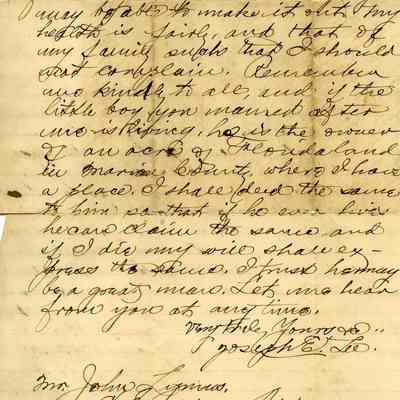 may be able to make it out. My
health is fairly, and that of
my family such that I should
not complain. Remember
me kindly to all, and if the
little boy you named after
me is living, he is the owner
of an acre of Florida land
in Marion County, where I have
a place. I shall deed the same
to him so that if he ever lives
he can claim the same and
if I die my will shall ex-
press the same. I trust he may
be a great man. Let me hear
from you at any time.
Very truly Yours &c.,
Joseph E. Lee.
Mr. John